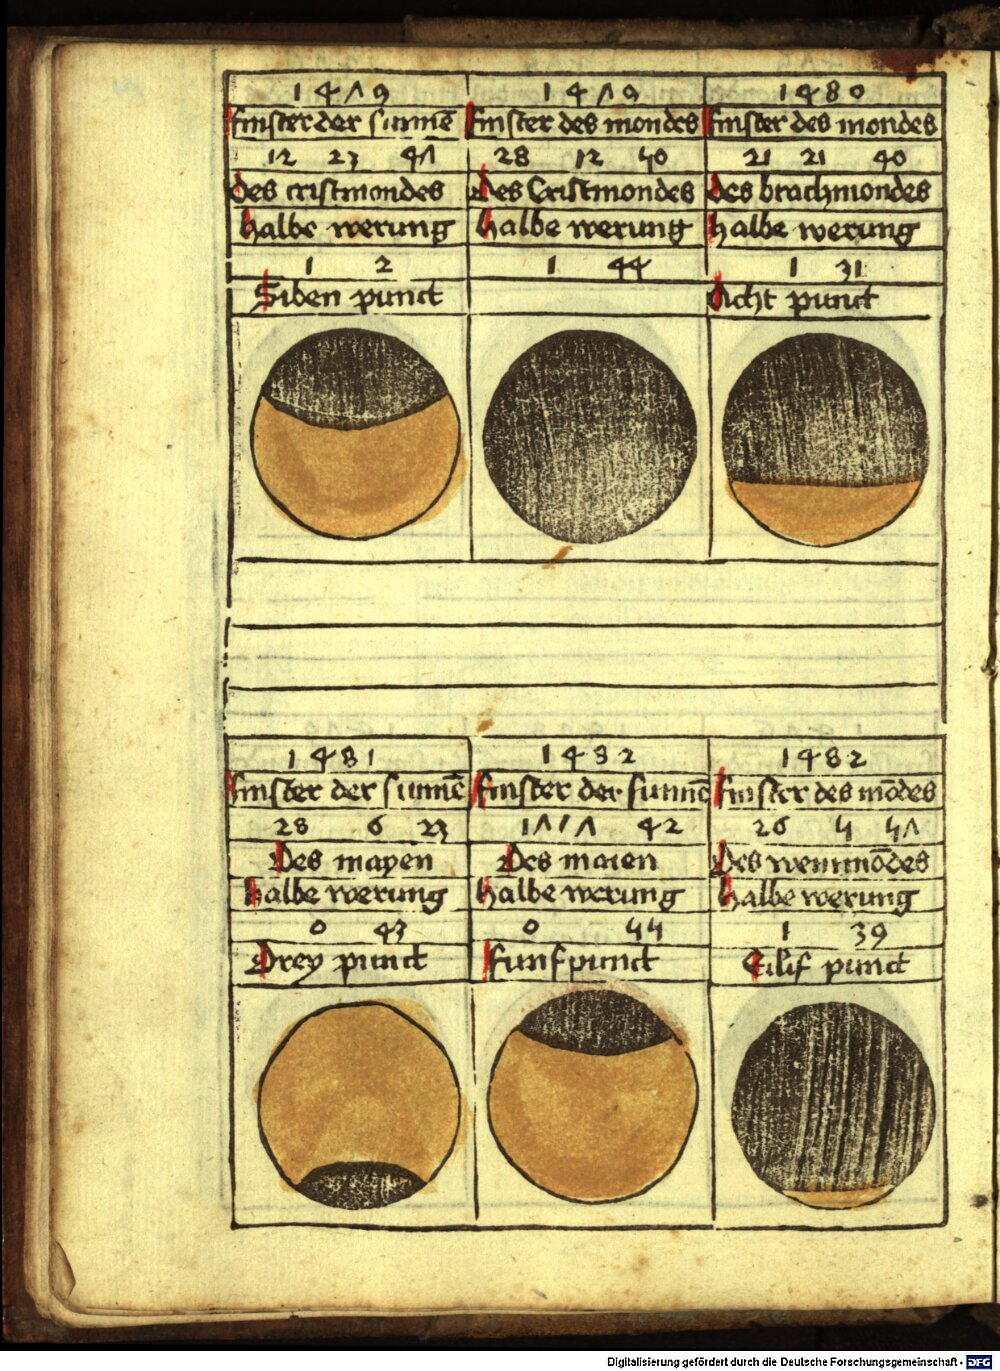 1479
Finster der sunnē
12 23 47
des cristmondes
halbe werung
1 2
Siben punct
1479
Finster des mondes
28 12 50
des Cristmondes
halbe werung
1 44
1480
Finster des mondes
21 21 40
des brachmondes
halbe werung
1 31
Acht punct
1481
Finster der sunnē
28 6 23
Des mayen
halbe werung
0 43
Drey punct
1482
Finster der sunnē
17 7 42
Des maien
halbe werung
0 55
Funf punct
1482
Finster des mōdes
26 5 57
Des weinmōdes
halbe werung
1 39
Eilif punct
Digitalisierung gefördert durch die Deutsche Forschungsgemeinschaft - DFG